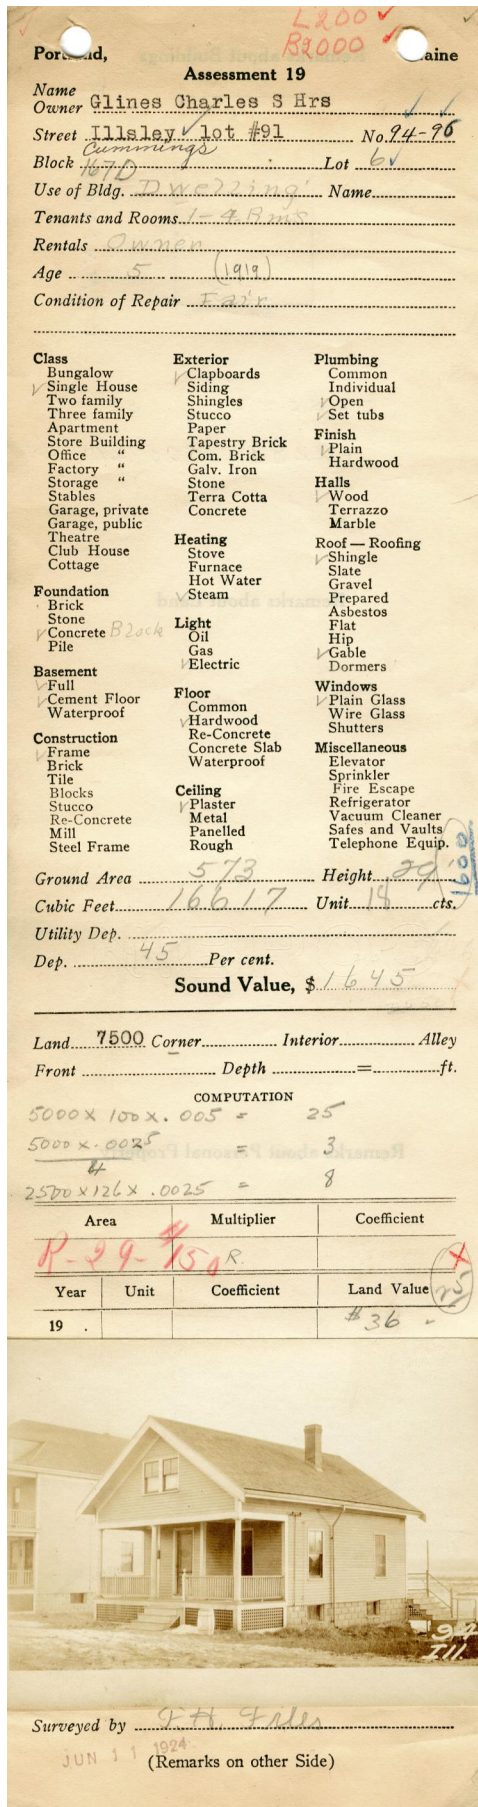 L200 ✓
B2000 ✓
Portland, Maine
Assessment 19
Name
Owner Glines Charles S Hrs
Street Illsley lot #91 No. 94-96
Cummings
Block 167D Lot 6
Use of Bldg. Dwelling Name
Tenants and Rooms 1-4 Rms
Rentals Owner
Age 5 (1919)
Condition of Repair Fair
Class
Bungalow
✓ Single House
Two family
Three family
Apartment
Store Building
Office "
Factory "
Storage "
Stables
Garage, private
Garage, public
Theatre
Club House
Cottage
Foundation
Brick
Stone
✓ Concrete Block
Pile
Basement
✓ Full
✓ Cement Floor
Waterproof
Construction
✓ Frame
Brick
Tile
Blocks
Stucco
Re-Concrete
Mill
Steel Frame
Exterior
✓ Clapboards
Siding
Shingles
Stucco
Paper
Tapestry Brick
Com. Brick
Galv. Iron
Stone
Terra Cotta
Concrete
Heating
Stove
Furnace
Hot Water
✓ Steam
Light
Oil
Gas
✓ Electric
Floor
Common
✓ Hardwood
Re-Concrete
Concrete Slab
Waterproof
Ceiling
✓ Plaster
Metal
Panelled
Rough
Plumbing
Common
Individual
✓ Open
✓ Set tubs
Finish
✓ Plain
Hardwood
Halls
✓ Wood
Terrazzo
Marble
Roof — Roofing
✓ Shingle
Slate
Gravel
Prepared
Asbestos
Flat
Hip
✓ Gable
Dormers
Windows
✓ Plain Glass
Wire Glass
Shutters
Miscellaneous
Elevator
Sprinkler
Fire Escape
Refrigerator
Vacuum Cleaner
Safes and Vaults
Telephone Equip.
1600
Ground Area 573 Height 29
Cubic Feet 16617 Unit 18 cts.
Utility Dep.
Dep. 45 Per cent.
Sound Value, $ 1645
Land 7500 Corner Interior Alley
Front Depth = ft.
COMPUTATION
5000 x 100 x .005 = 25
5000 x .0025 = 3
4
2500 x 126 x .0025 = 8
Area Multiplier Coefficient
R-29-$150 R.
Year Unit Coefficient Land Value 25
19 . $36
94
Ill.
Surveyed by F. H. Files
JUN 11 1924
(Remarks on other Side)